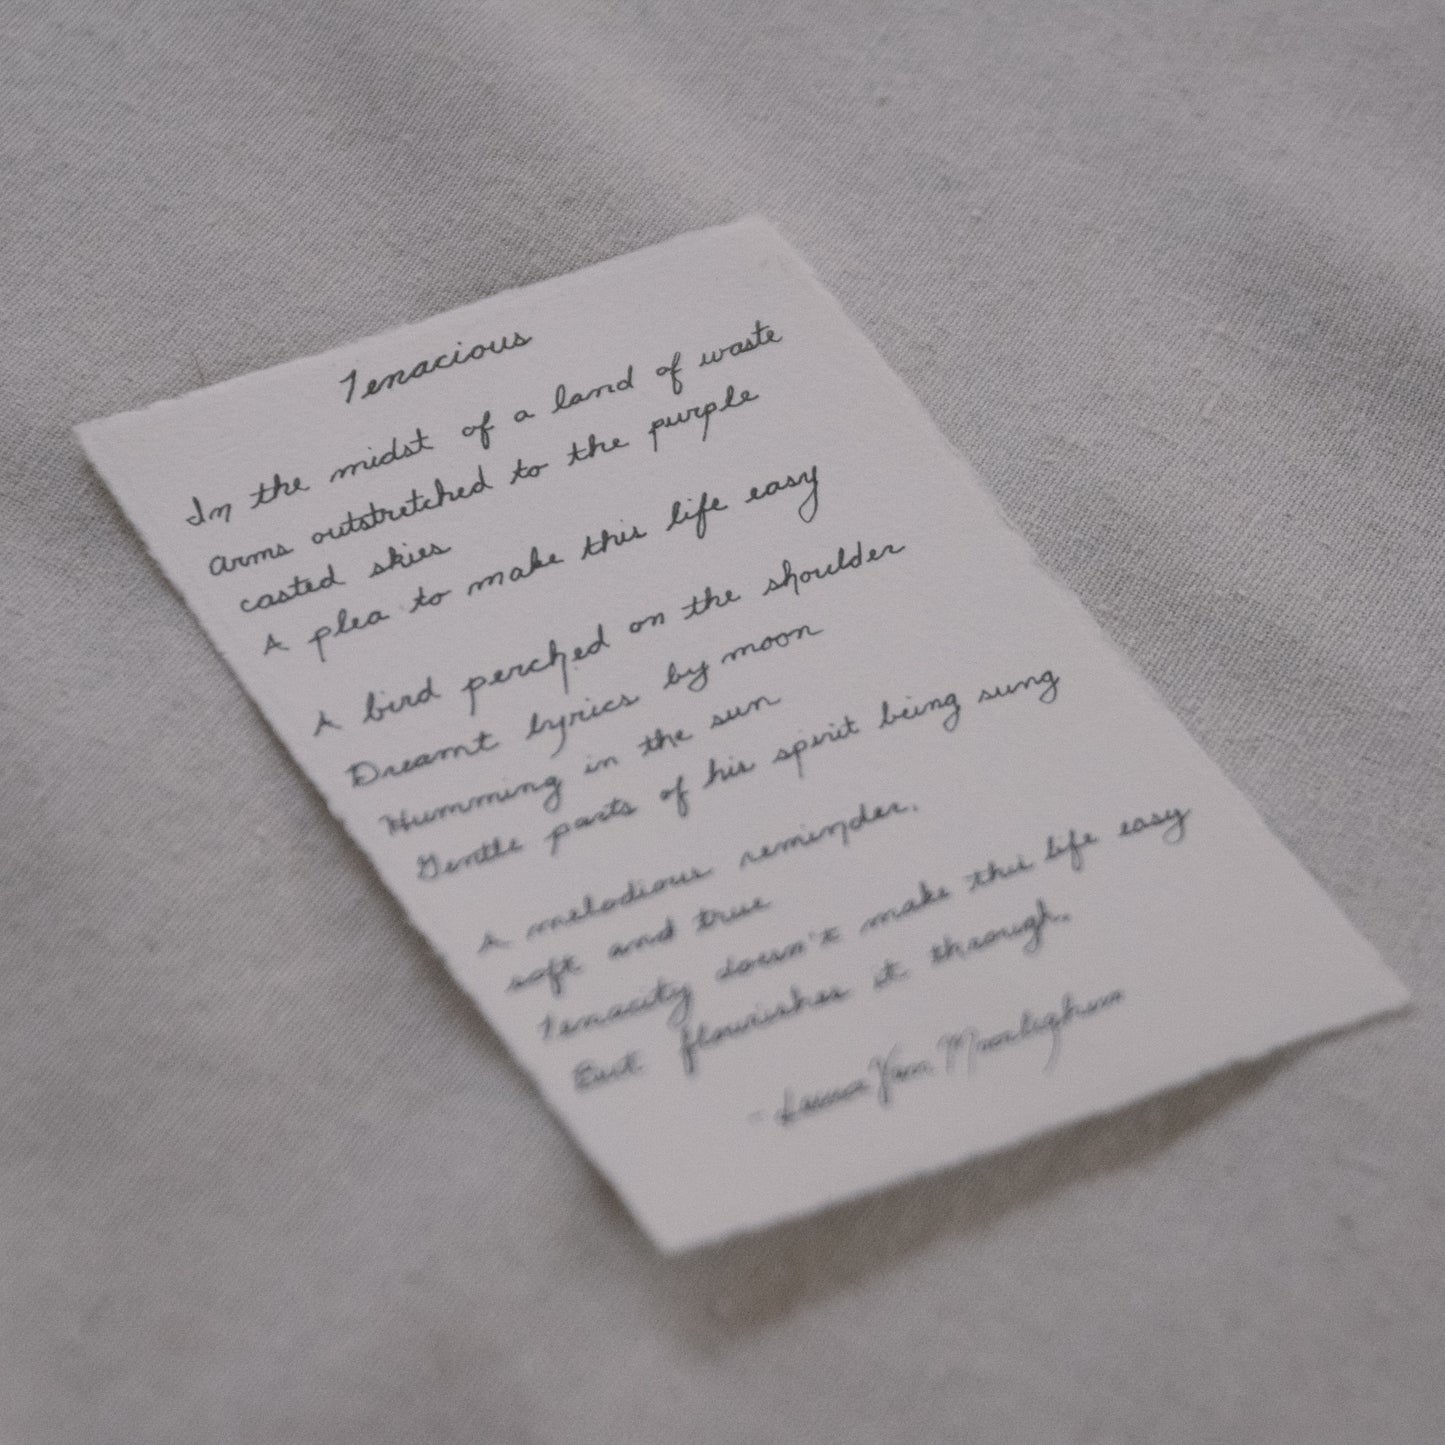 Tenacious
In the midst of a land of waste
Arms outstretched to the purple
casted skies
A plea to make this life easy
A bird perched on the shoulder
Dreamt lyrics by moon
Humming in the sun
Gentle parts of his spirit being sung
A melodious reminder,
soft and true
Tenacity doesn't make this life easy
But flourishes it through.